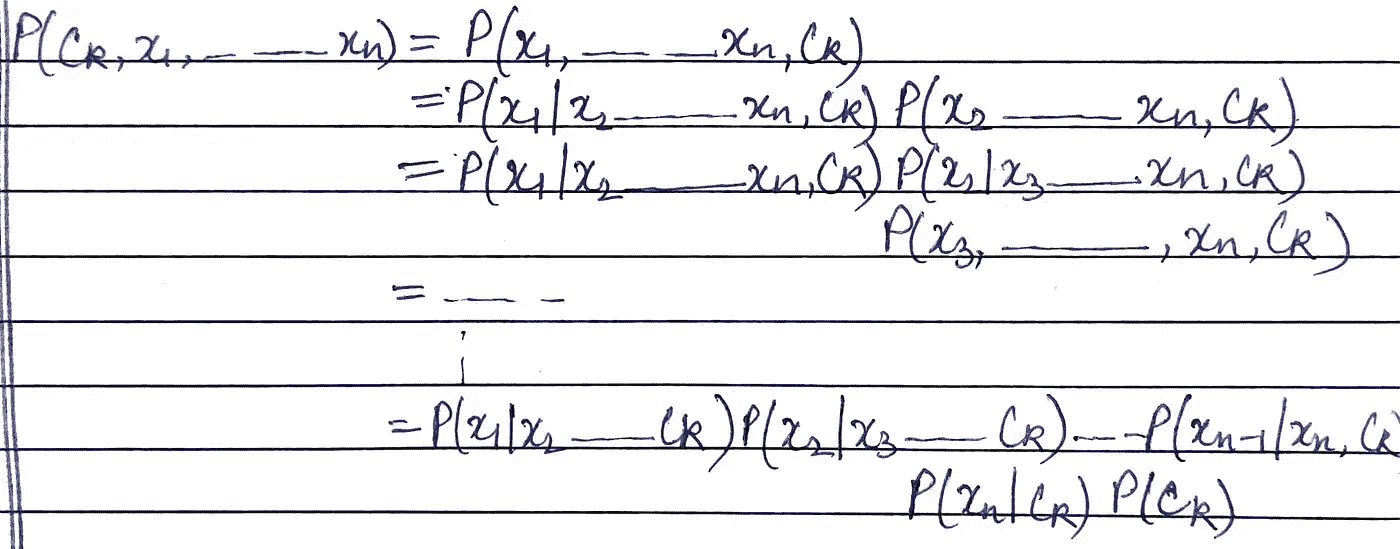 P(CK, x1, — — xn) = P(x1, — — xn, CK)
= P(x1|x2 —— xn, CK) P(x2 —— xn, CK)
= P(x1|x2 —— xn, CK) P(x2|x3 —— xn, CK)
P(x3, ——, xn, CK)
= —— –
= P(x1|x2 —— CK) P(x2|x3 —— CK) — – P(xn-1|xn, CK)
P(xn|CK) P(CK)